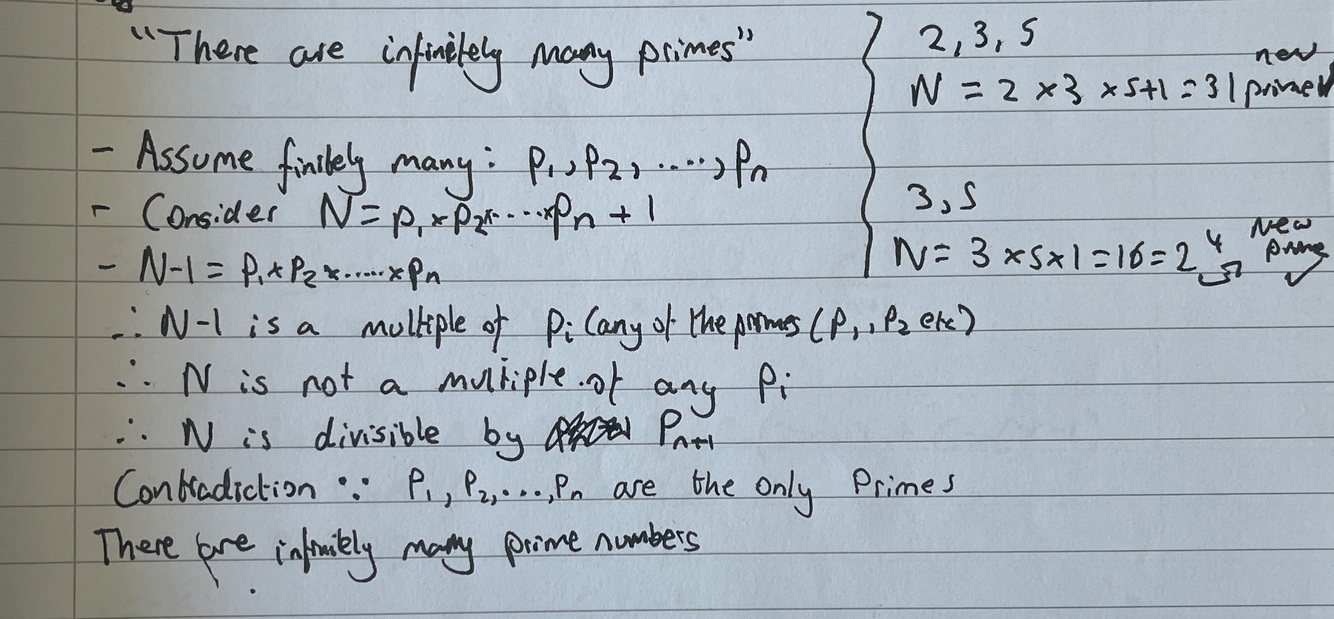 "There are infinitely many primes"
- Assume finitely many: p₁, p₂, ....., pₙ
- Consider N = p₁ × p₂ × ..... × pₙ + 1
- N-1 = p₁ × p₂ × ...... × pₙ
∴ N-1 is a multiple of pᵢ (any of the primes (p₁, p₂ etc)
∴ N is not a multiple of any pᵢ
∴ N is divisible by pₙ₊₁
Contradiction ∵ p₁, p₂, ..., pₙ are the only primes
There are infinitely many prime numbers
2, 3, 5
N = 2 × 3 × 5 + 1 = 31 new prime ✓
3, 5
N = 3 × 5 × 1 = 16 = 2⁴ New prime ✓